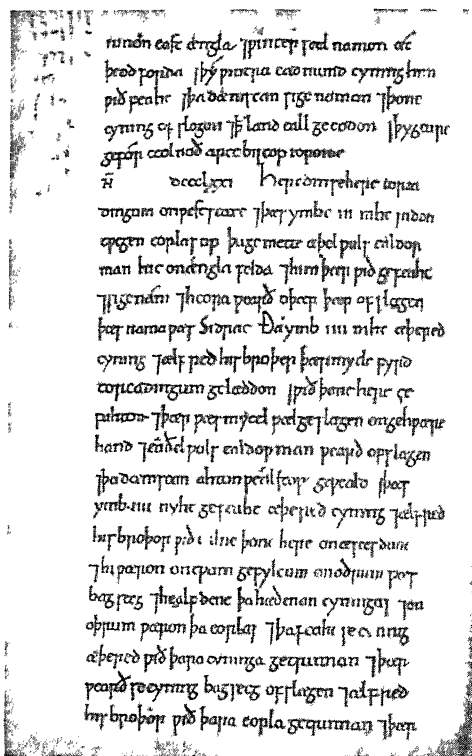 east engla ⁊ winter setl namon æt
þeod forda ⁊ þy eadmund cyning him
wiþ feaht ⁊ þa sige naman ⁊ þone
cyning of slogon ⁊ þ land eall ge eodon ⁊ þy geare
gefor ceolnoð arce biscop to rome
dccclxxi Her com se here to rea
dingum on ⁊ þæs ymbe iii niht ridon
twegen eorlas up þa ge mette æþel pulf ealdor
man hie on ængla felda ⁊ him þær wið gefeaht
⁊ sige nam ⁊ heora wearð oþer þær of slegen
þæs nama wæs Sidrac Ða ymb iiii niht æþered
cyning ⁊ ælf red his broþer þær mycle fyrd
to readingum gelæddon ⁊ wið þone here ge
⁊ þær wæs mycel wæl geslagen on gehwæþre
hand ⁊ wulf ealdor man wearð ofslagen
⁊ þa ahton geweald ⁊ þæs
ymb iiii nyht gefeaht æþered cyning ⁊ ælfred
his broþor wið þone here on
⁊ hi wæron on twam gefylcum on oðrum wæs
⁊ healf dene þa hæðenan cyningas ⁊ on
oþrum wæron þa eorlas ⁊ þa feaht se cyning
æþered wið þara cyninga getruman ⁊ þær
wearð se cyning bagsecg ofslagen ⁊ ælfred
his broþor wið þara eorla getruman ⁊ þær